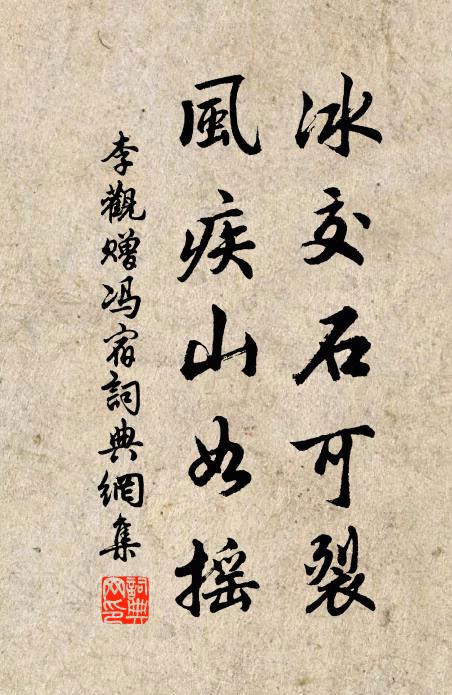 冰交石可裂
風疾山如搖
李觀贈馮宿詞典網集
詞典網印